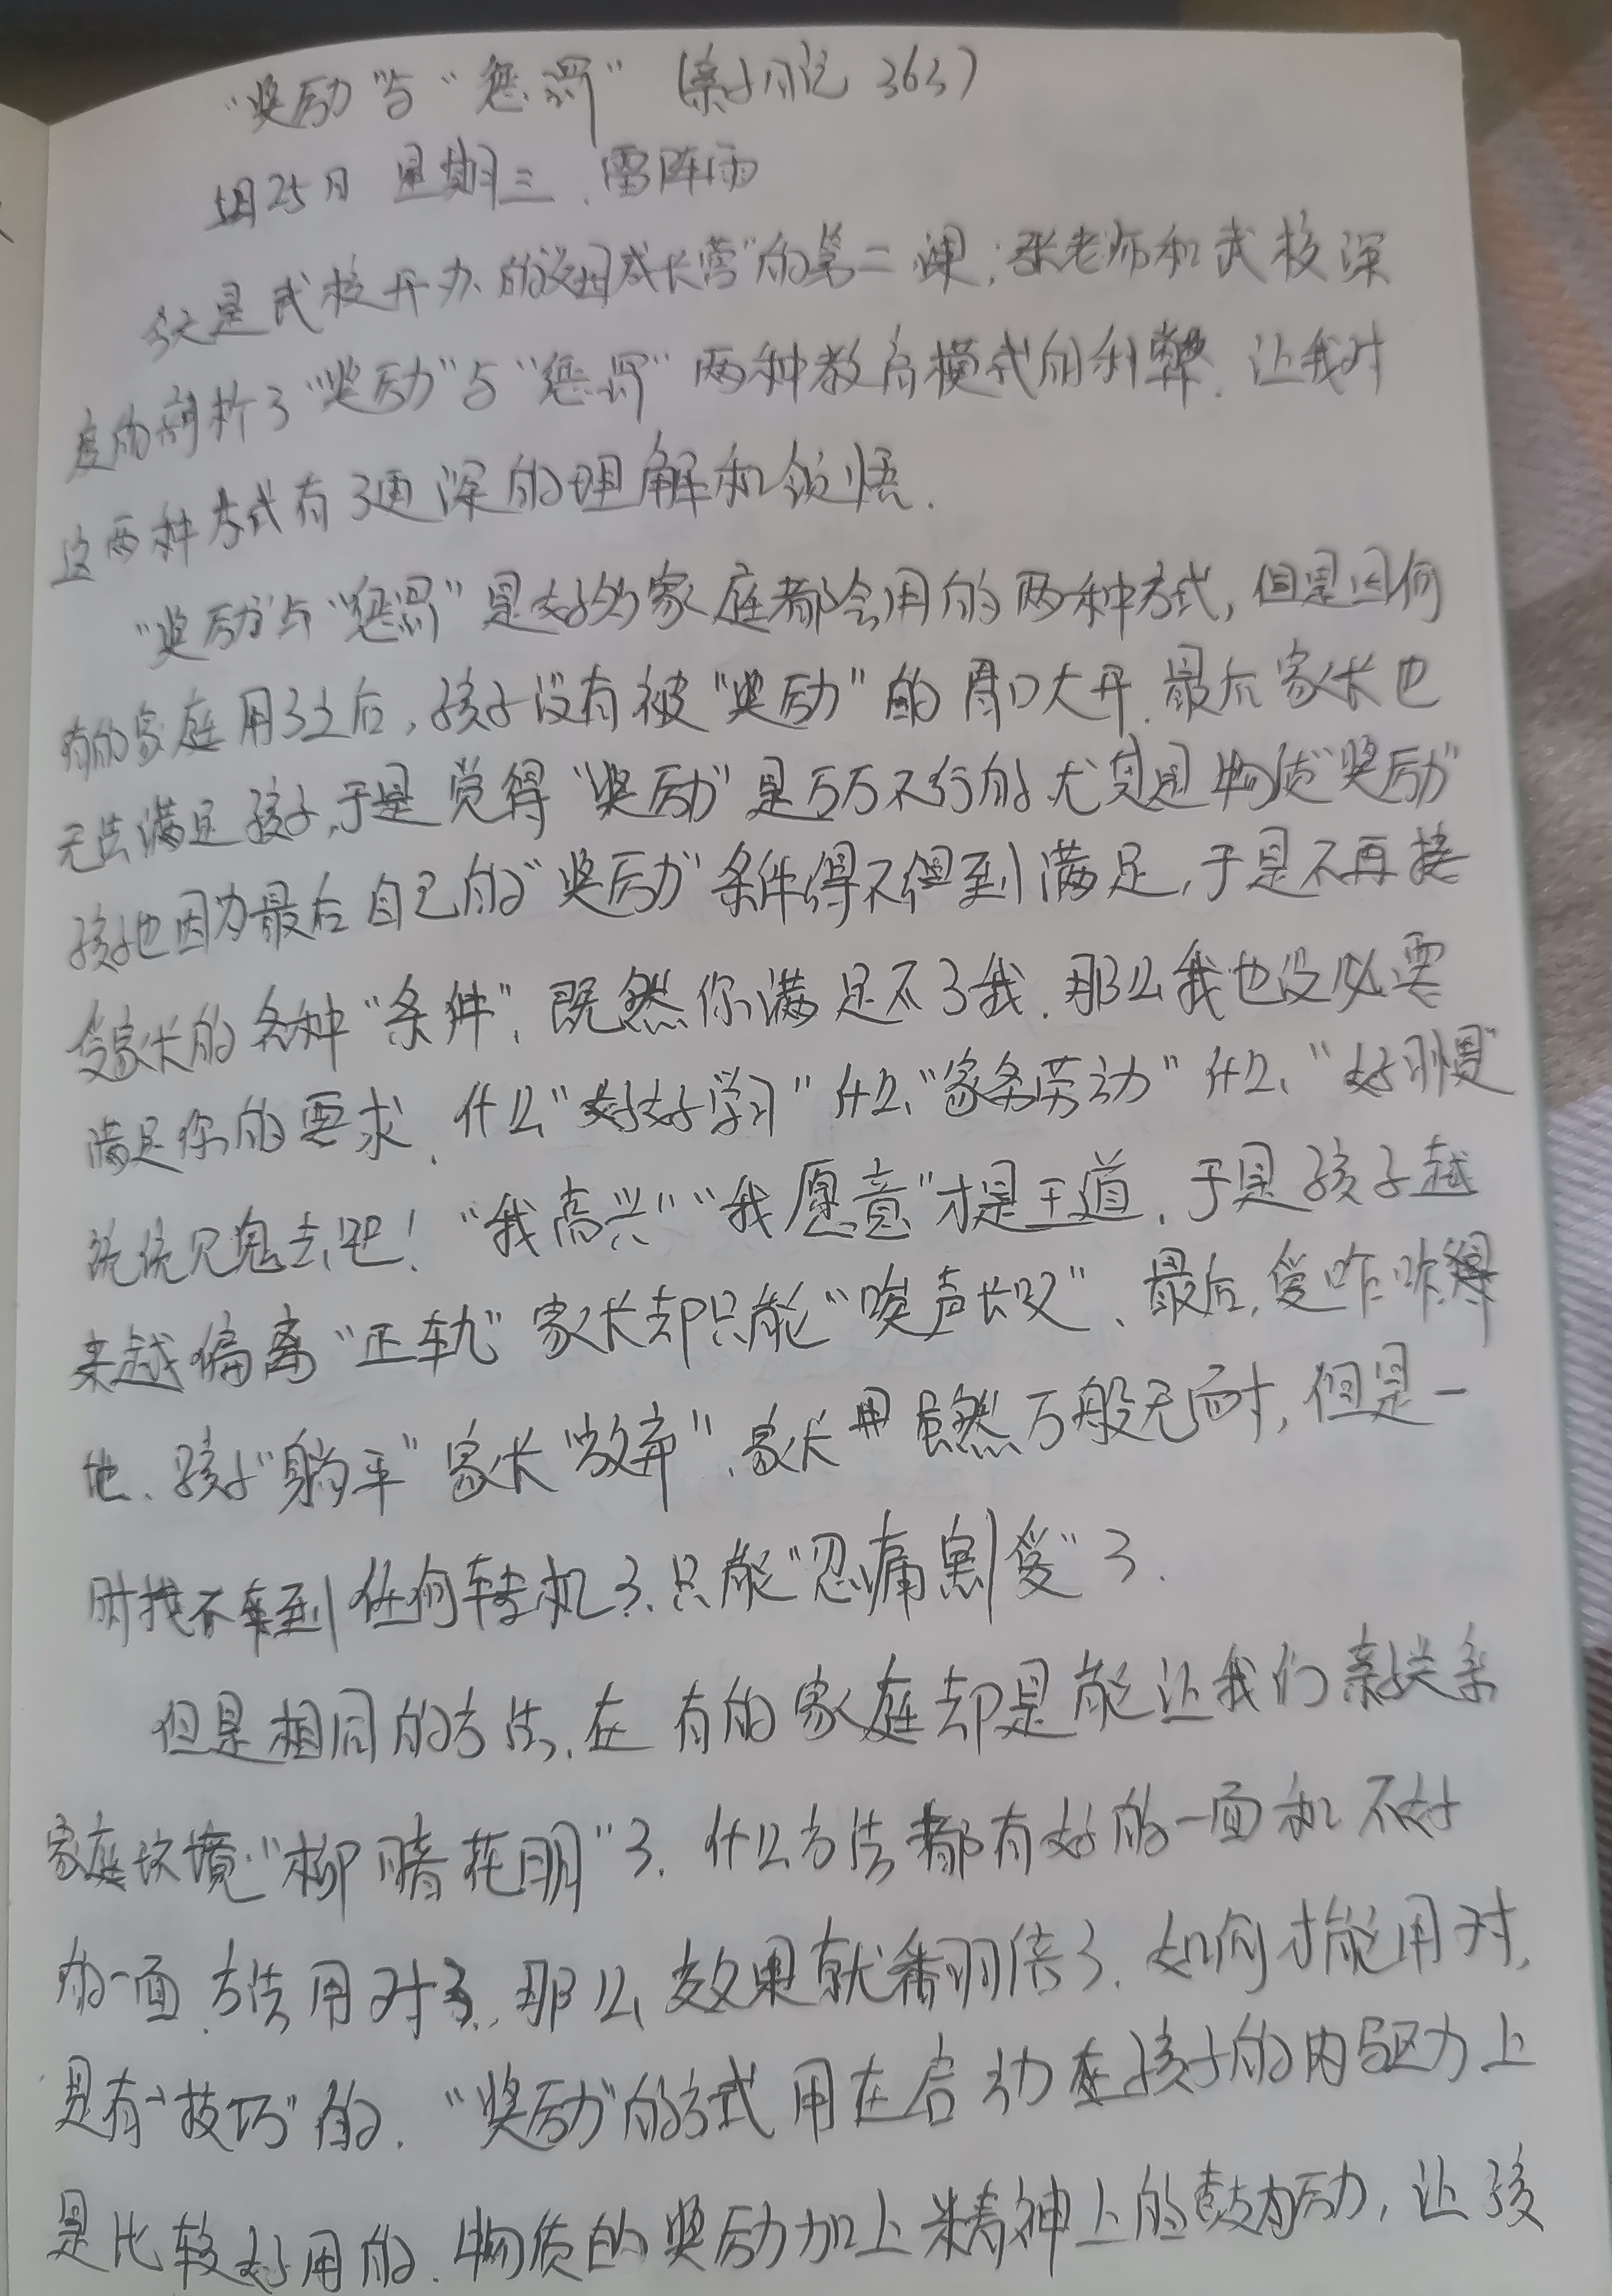 “奖励”与“惩罚”(亲子日记 363)
5月25日 星期三、雷阵雨
今天是武校开办的“父母成长营”的第二课,张老师和武校深
度的剖析了“奖励”与“惩罚”两种教育模式的利弊.让我对
这两种方式有了更深的理解和领悟.
“奖励”与“惩罚”是好多家庭都会用的两种方式,但是因何
有的家庭用了之后,孩子没有被“奖励”的胃口大开.最后家长也
无法满足孩子,于是觉得“奖励”是万万不行的尤其是物质“奖励”
孩子也因为最后自己的“奖励”条件得不到满足,于是不再接
受家长的各种“条件”,既然你满足不了我.那么我也没必要
满足你的要求.什么“好好学习”什么“家务劳动”什么“好习惯”
统统见鬼去吧!“我高兴”“我愿意”才是王道.于是孩子越
来越偏离“正轨”家长却只能“唉声长叹”、最后,爱咋咋得
地、孩子“躺平”家长“放弃”、家长虽然万般无奈,但是一
时找不到任何转机了、只能“忍痛割爱”了.
但是相同的方法、在有的家庭却是能让我们亲子关系
家庭环境“柳暗花明”了.什么方法都有好的一面和不好
的一面.方法用对了,那么效果就翻倍了.如何才能用对,
是有“技巧”的.“奖励”的方式用在启动在孩子的内驱力上
是比较好用的.物质的奖励加上精神上的鼓励,让孩